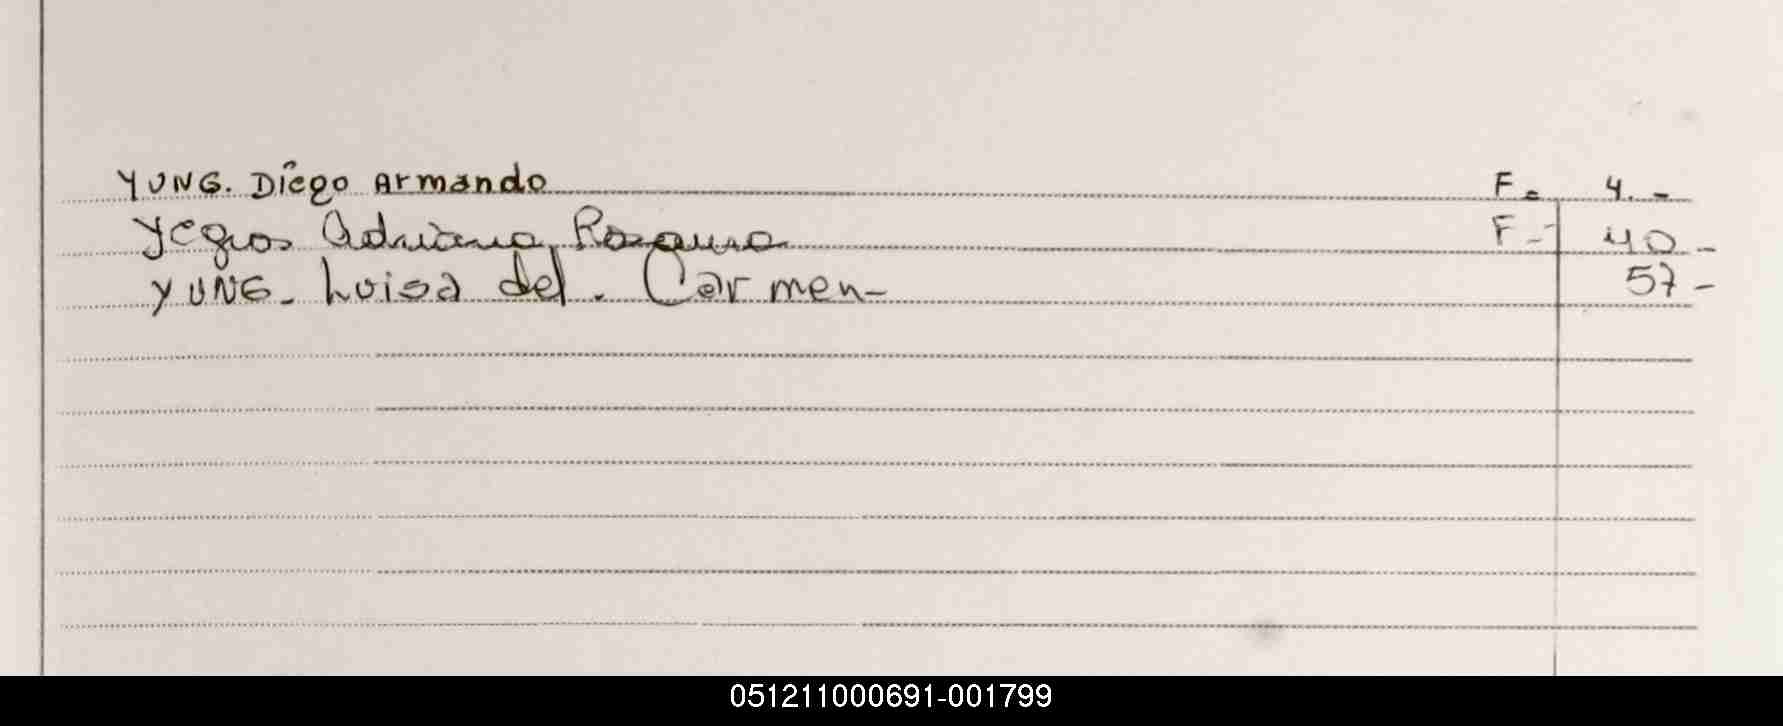 YUNG. Diego Armando F= 4.-
Yegros Adriana Rosaura F- 40-
YUNG- Luisa del. Carmen- 57-
051211000691-001799